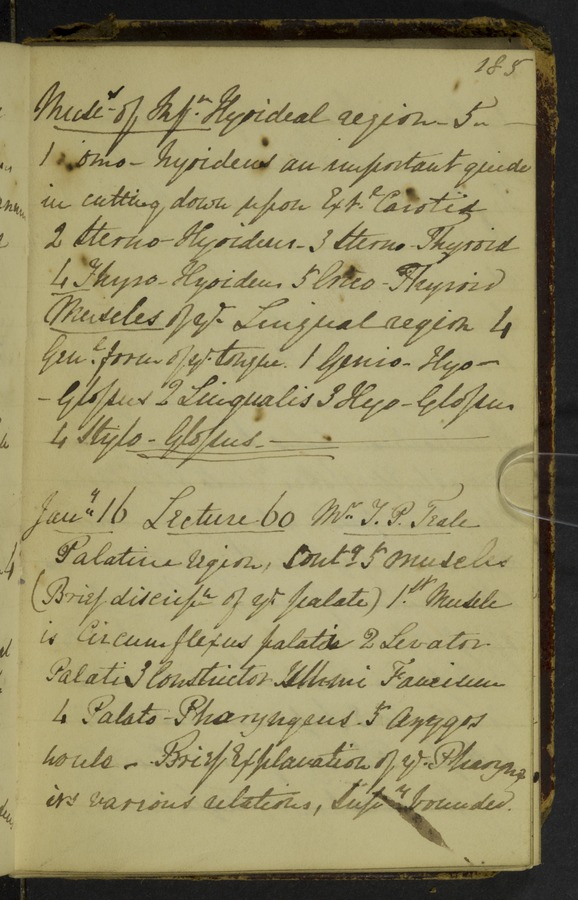 185
Musc.s of Inf.r Hyoideal region - 5 -
1 Omo - hyoideus an important guide
in cutting down upon Ext.l Carotid
2 Sterno - Hyoideus - 3 Sterno - Thyroid
4 Thyro - Hyoideus 5 Crico - Thyroid
Muscles of ye. Lingual region 4
Gen.l form of ye. tongue. 1 Genio - Hyo -
- Glossus 2 Lingualis 3 Hyo - Glossus
4 Stylo - Glossus -
Jan.y 16 Lecture 60 Mr. T. P. Teale
Palatine region, Cont.g 5 muscles
(Brief discrip.n of ye palate) 1.st Muscle
is Circumflexus palati 2 Levator
Palati 3 Constrictor Isthmi Faucium
4 Palato - Pharyngeus - 5 Azygos
uvula - Brief Explanation of ye. Pharynx
its various relations, Sup.ly bounded.